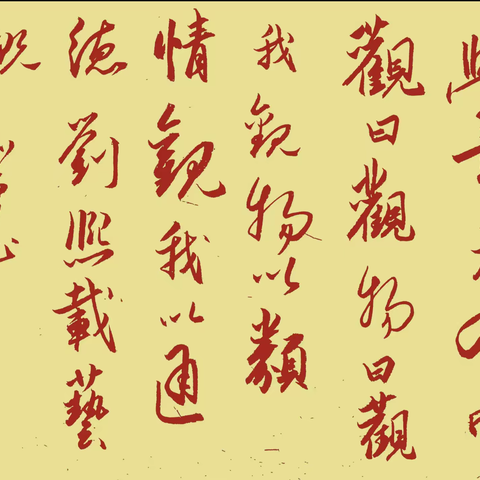 觀曰觀物曰觀
我觀物以類
情觀我以通
德劉熙載藝